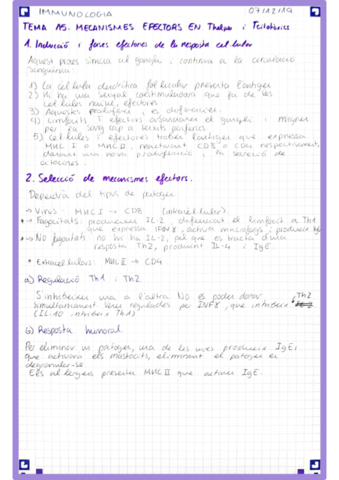 IMMUNOLOGIA 07/12/19
TEMA 15: MECANISMES EFECTORS EN Thelper i Tcitotòxics
1. Inducció i fases efectores de la resposta cel·lular
Aquest procés s'inicia al gangli i continua a la circulació
sanguínia:
1) La cèl·lula dendrítica fol·licular presenta l'antigen
2) Hi ha una senyal coestimuladora que fa de les
cèl·lules naïve, efectores
3) Aquestes proliferen i es diferencien.
4) Limfòcits T efectors abandonen el gangli i migren
per la sang cap a teixits perifèrics
5) Cèl·lules T efectores troben l'antigen que expressa
MHC I o MHC II, reactivant CD8 o CD4 respectivament
donant una nova proliferació i la secreció de
citocines.
2. Selecció de mecanismes efectors.
Dependrà del tipus de patogen
→ Virus: MHC I → CD8 (intracel·lular)
• Fagocitats: produeixen IL-2, diferenciant el limfòcit a Th1
que expressa IFNγ, activa macròfags i produeix
→ No fagocitats no hi ha IL-2, pel que es tracta d'una
resposta Th2, produint IL-4 i IgE
• Extracel·lulars: MHC II → CD4
a) Regulació Th1 i Th2
S'inhibeixen una a l'altra. No es poden donar
simultàniament. Venen regulades per INFγ, que inhibeix Th2
(IL-10 inhibeix Th1)
b) Resposta humoral
Per eliminar un patogen, una de les vies produeix IgE,
que activarà els mastòcits, eliminant el patogen en
degranular-se.
Els al·lèrgens presenten MHC II que activen IgE.